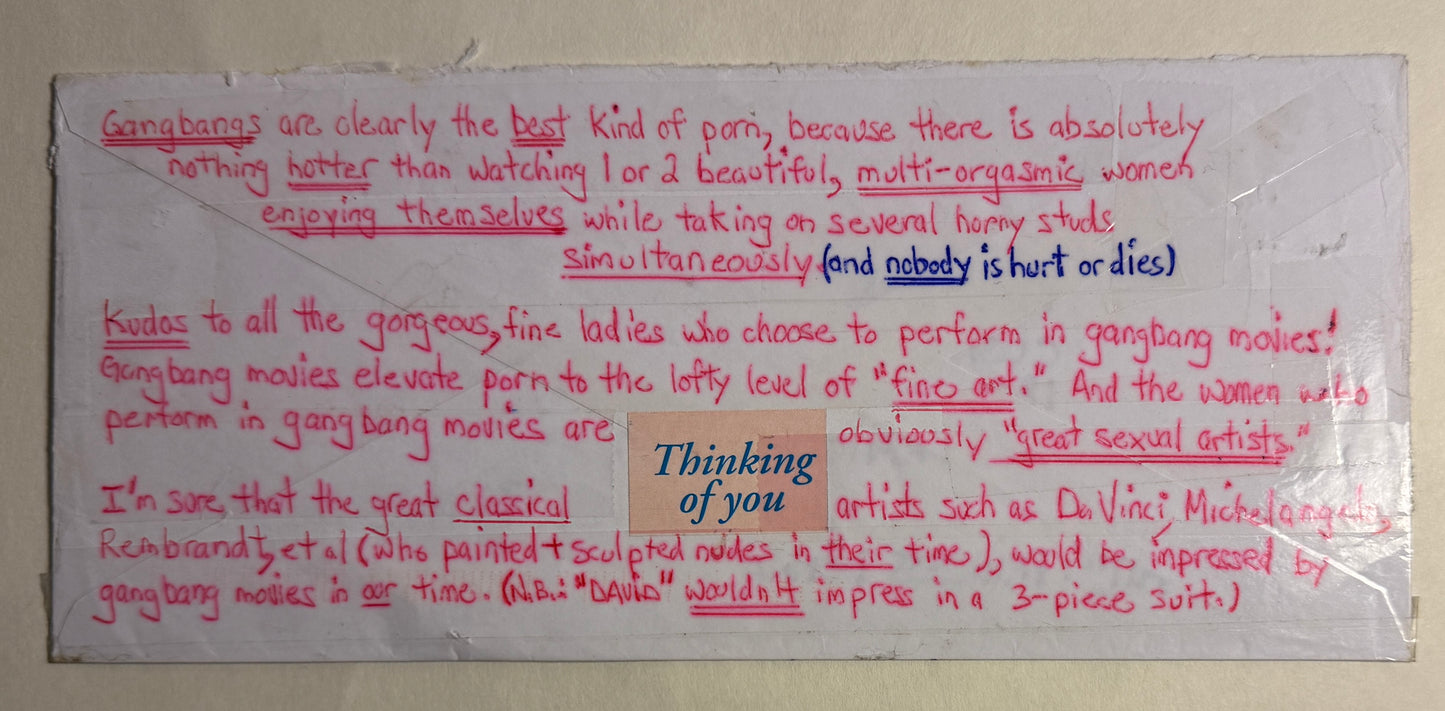 Gangbangs are clearly the best kind of porn, because there is absolutely
nothing hotter than watching 1 or 2 beautiful, multi-orgasmic women
enjoying themselves while taking on several horny studs
simultaneously (and nobody is hurt or dies)
Kudos to all the gorgeous, fine ladies who choose to perform in gangbang movies!
Gangbang movies elevate porn to the lofty level of "fine art." And the women who
perform in gangbang movies are obviously "great sexual artists."
Thinking
of you
I'm sure that the great classical artists such as DaVinci, Michelangelo,
Rembrandt, et al (who painted + sculpted nudes in their time), would be impressed by
gangbang movies in our time. (N.B.: "DAViD" wouldn't impress in a 3-piece suit.)